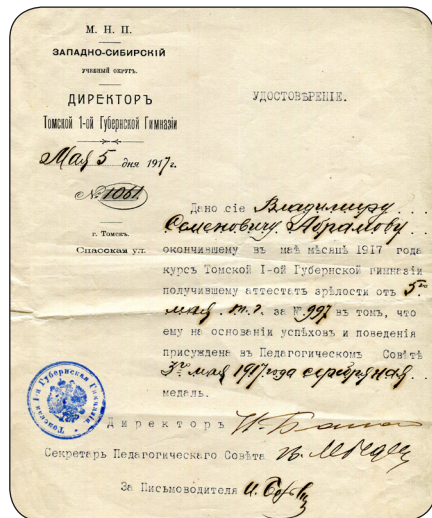 М. Н. П.
ЗАПАДНО-СИБИРСКІЙ
УЧЕБНЫЙ ОКРУГЪ.
ДИРЕКТОРЪ
Томской 1-ой Губернской Гимназіи
Мая 5 дня 1917 г.
№ 1061.
г. Томскъ.
Спасская ул.
УДОСТОВѢРЕНІЕ.
Дано сіе Владиміру
Семеновичу Абрамову
окончившему въ маѣ мѣсяцѣ 1917 года
курсъ Томской I-ой Губернской гимназіи
получившему аттестатъ зрѣлости отъ 5го
мая т. г. за № 997 въ томъ, что
ему на основаніи успѣховъ и поведенія
присуждена въ Педагогическомъ Совѣтѣ
3го мая 1917 года серебряная
медаль.
Томская 1-я Губернская Гимназія
Директоръ Н.
Секретарь Педагогическаго Совѣта
За Письмоводителя И.